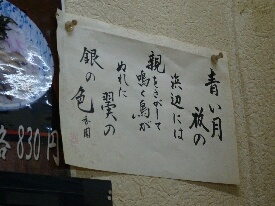 青い月
夜の
浜辺には
親をさがして
鳴く鳥が
ぬれた
翼の
銀の色
830円